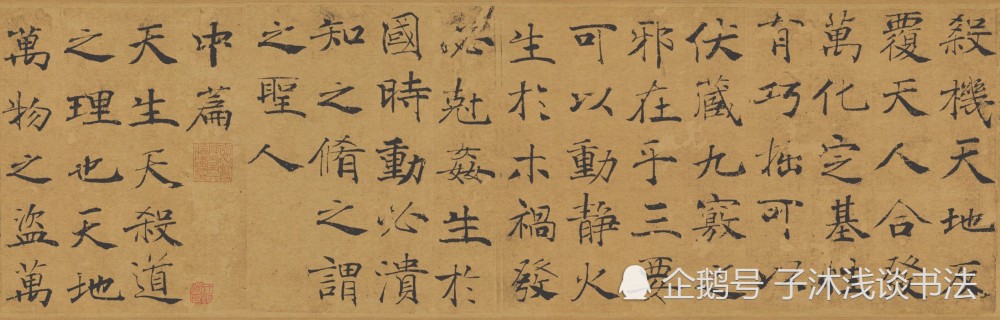 殺機天地反
覆天人合發
萬化定基性
有巧拙可以
伏藏九竅之
邪在乎三要
可以動静火
生於木禍發
必尅姦生於
國時動必潰
知之脩之謂
之聖人
中篇
天生天殺道
之理也天地
萬物之盜萬
企鹅号 子沐浅谈书法